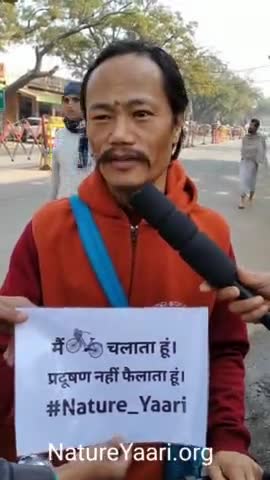 मैं चलाता हूं।
प्रदूषण नहीं फैलाता हूं।
#Nature_Yaari
NatureYaari.org